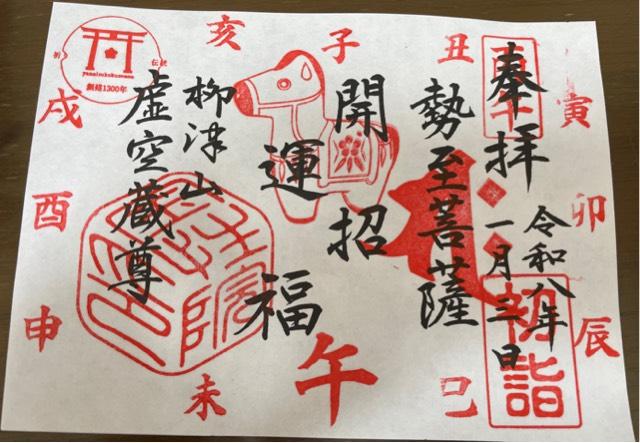 奉拝
令和八年
一月三日
勢至菩薩
開運招福
柳津山
虚空蔵尊
初詣
子
丑
寅
卯
辰
巳
午
未
申
酉
戌
亥
創建1300年